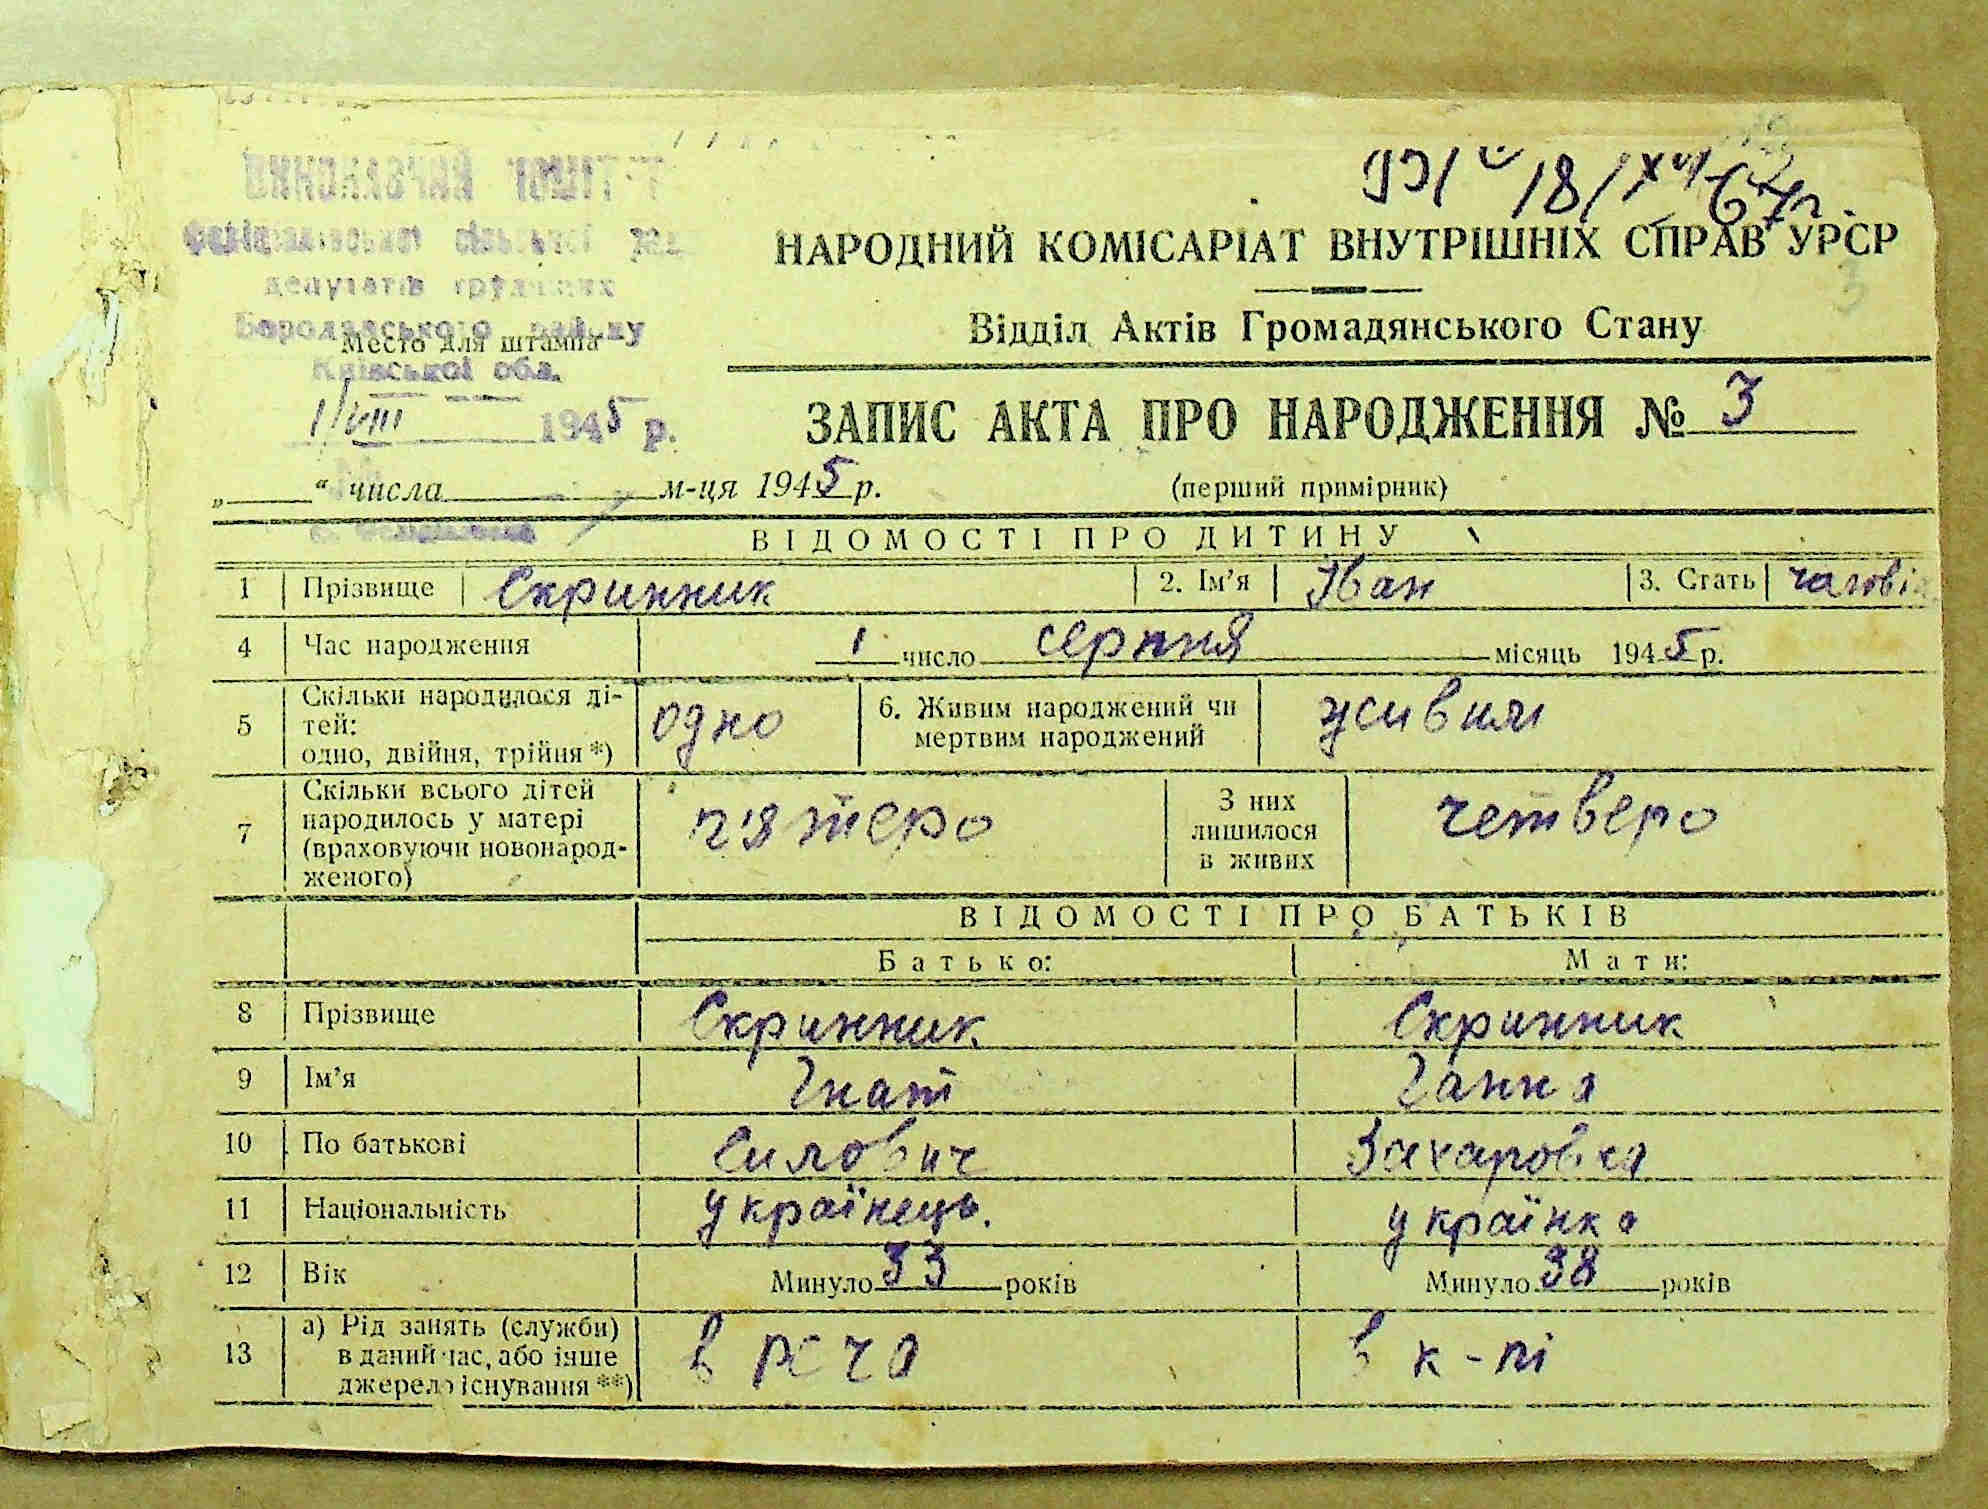 ВИКОНАВЧИЙ КОМІТЕТ
сільської
депутатів трудящих
Бородянського району
Место для штампа
Київської обл.
1/VIII 1945 р.
„ “ числа м-ця 1945 р.
18/ 67р
НАРОДНИЙ КОМІСАРІАТ ВНУТРІШНІХ СПРАВ УРСР
3
Відділ Актів Громадянського Стану
ЗАПИС АКТА ПРО НАРОДЖЕННЯ № 3
(перший примірник)
ВІДОМОСТІ ПРО ДИТИНУ
1 Прізвище Скринник 2. Ім’я Іван 3. Стать
4 Час народження 1 число серпня місяць 1945 р.
5 Скільки народилося ді-
тей:
одно, двійня, трійня *) одно 6. Живим народжений чи
мертвим народжений живим
7 Скільки всього дітей
народилось у матері
(враховуючи новонарод-
женого) п'ятеро З них
лишилося
в живих четверо
ВІДОМОСТІ ПРО БАТЬКІВ
Батько: Мати:
8 Прізвище Скринник Скринник
9 Ім’я Гнат Ганна
10 По батькові Силович Захаровна
11 Національність українець. українка
12 Вік Минуло 33 років Минуло 38 років
13 а) Рід занять (служби)
в даний час, або інше
джерело існування **) в РСЧА в к-пі